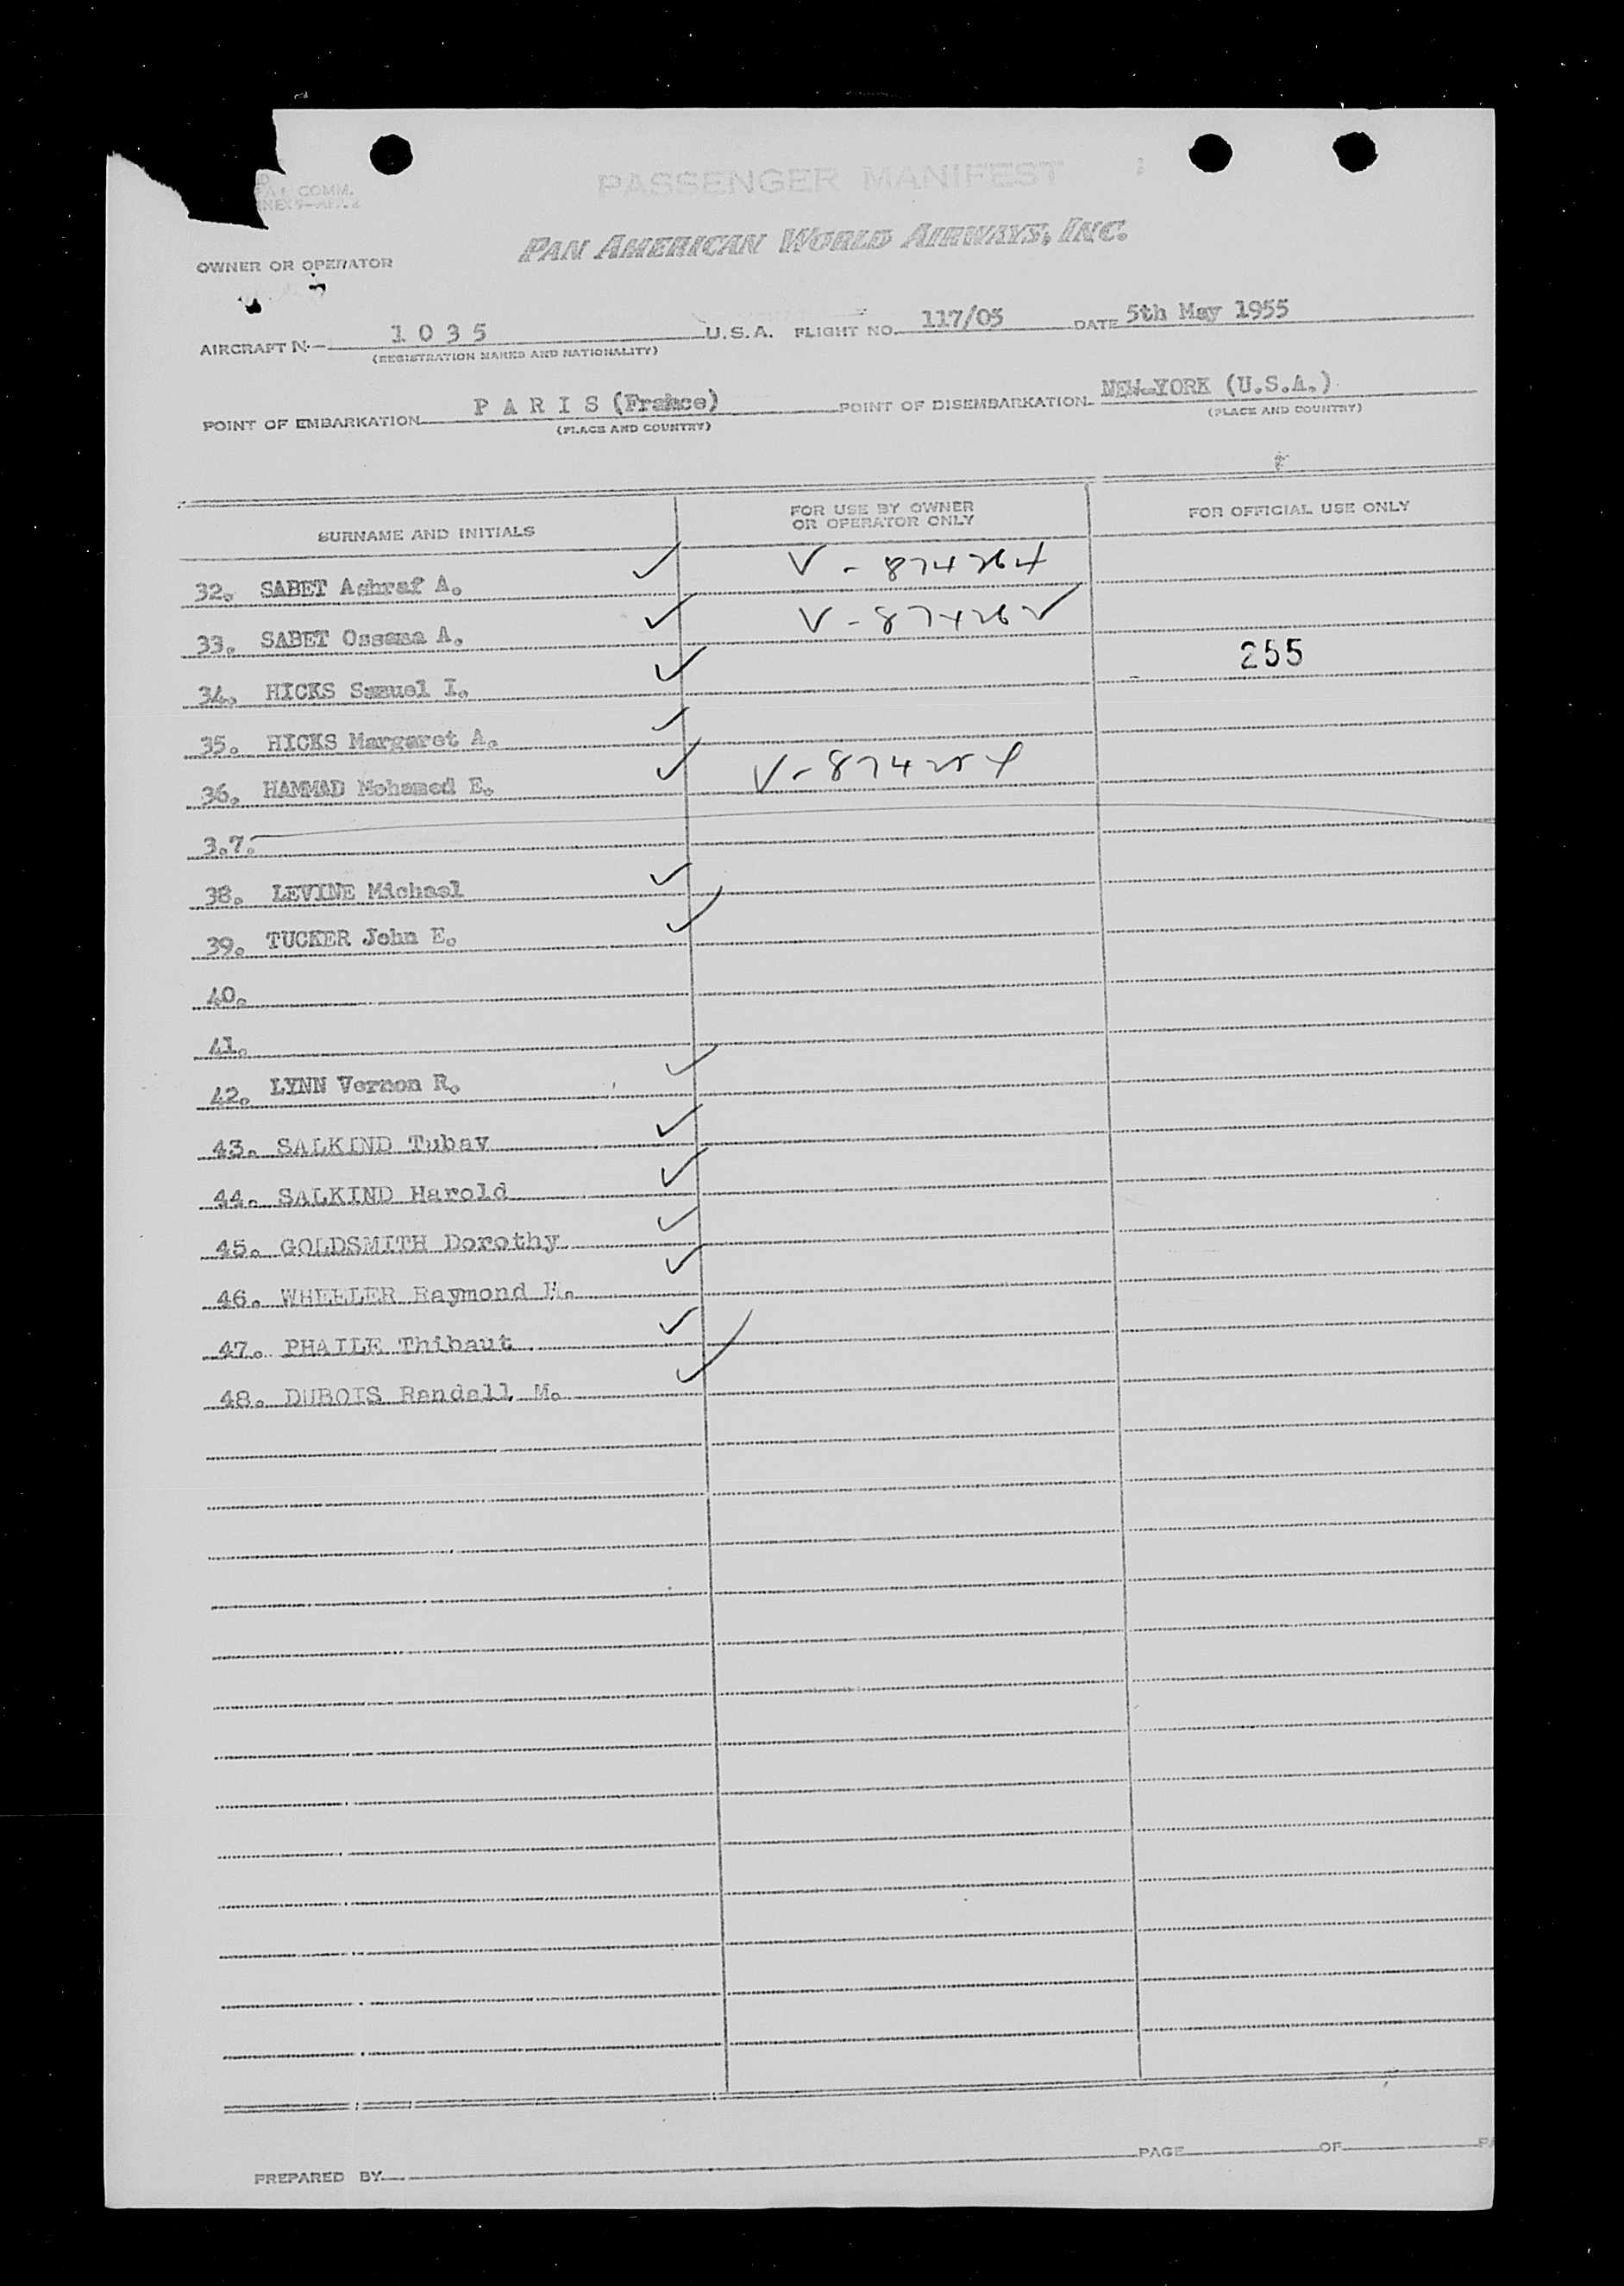 PASSENGER MANIFEST
PAN AMERICAN WORLD AIRWAYS, INC.
COMM.
OWNER OR OPERATOR
AIRCRAFT N- 1 0 3 5 U.S.A. FLIGHT NO. 117/05 DATE 5th May 1955
(REGISTRATION MARKS AND NATIONALITY)
POINT OF EMBARKATION P A R I S (France) POINT OF DISEMBARKATION NEW-YORK (U.S.A.)
(PLACE AND COUNTRY) (PLACE AND COUNTRY)
SURNAME AND INITIALS FOR USE BY OWNER OR OPERATOR ONLY FOR OFFICIAL USE ONLY
32. SABET Ashraf A. ✓
33. SABET Ossama A. ✓
255
34. HICKS Samuel I. ✓
35. HICKS Margaret A. ✓
36. HAMMAD Mohamed E. ✓
3.7.
38. LEVINE Michael ✓
39. TUCKER John E. ✓
40.
41.
42. LYNN Vernon R. ✓
43. SALKIND Tubav ✓
44. SALKIND Harold ✓
45. GOLDSMITH Dorothy ✓
46. WHEELER Raymond ✓
47. PHAILE Thibaut ✓
48. DUBOIS Randall M. ✓
PREPARED BY PAGE OF